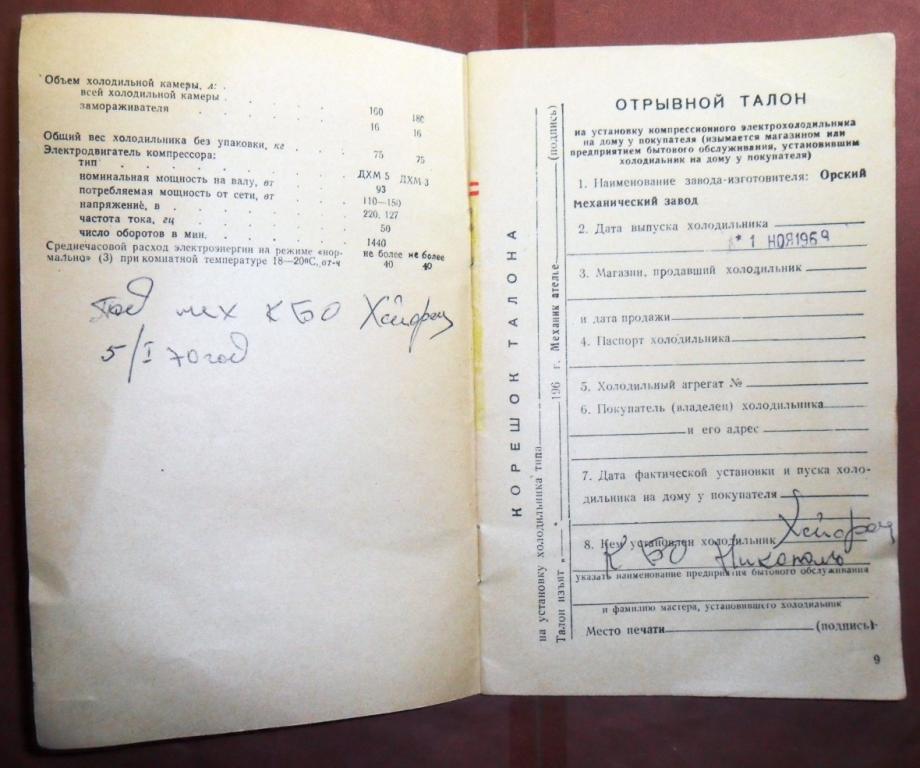 Объем холодильной камеры, л:
всей холодильной камеры . . . . . 160 180
замораживателя . . . . . 16 16
Общий вес холодильника без упаковки, кг . . 75 75
Электродвигатель компрессора:
тип . . . . . ДХМ 5 ДХМ 3
номинальная мощность на валу, вт . . . 93
потребляемая мощность от сети, вт . . . 110—150
напряжение, в . . . . . 220, 127
частота тока, гц . . . . . 50
число оборотов в мин. . . . . 1440
Среднечасовой расход электроэнергии на режиме «нор- не более не более
мально» (3) при комнатной температуре 18—20°С, вт-ч 40 40
мех КБО Хейфец
5/I 70 год
КОРЕШОК ТАЛОНА
на установку холодильника типа
Талон изъят „ “ 196 г. Механик ателье (подпись)
ОТРЫВНОЙ ТАЛОН
на установку компрессионного электрохолодильника
на дому у покупателя (изымается магазином или
предприятием бытового обслуживания, установившим
холодильник на дому у покупателя)
1. Наименование завода-изготовителя: Орский
механический завод
2. Дата выпуска холодильника
* 1 НОЯ 1969
3. Магазин, продавший холодильник
и дата продажи
4. Паспорт холодильника
5. Холодильный агрегат №
6. Покупатель (владелец) холодильника
и его адрес
7. Дата фактической установки и пуска холо-
дильника на дому у покупателя
8. Кем установлен холодильник Хейфец
КБО Никополь
указать наименование предприятия бытового обслуживания
и фамилию мастера, установившего холодильник
Место печати (подпись)
9